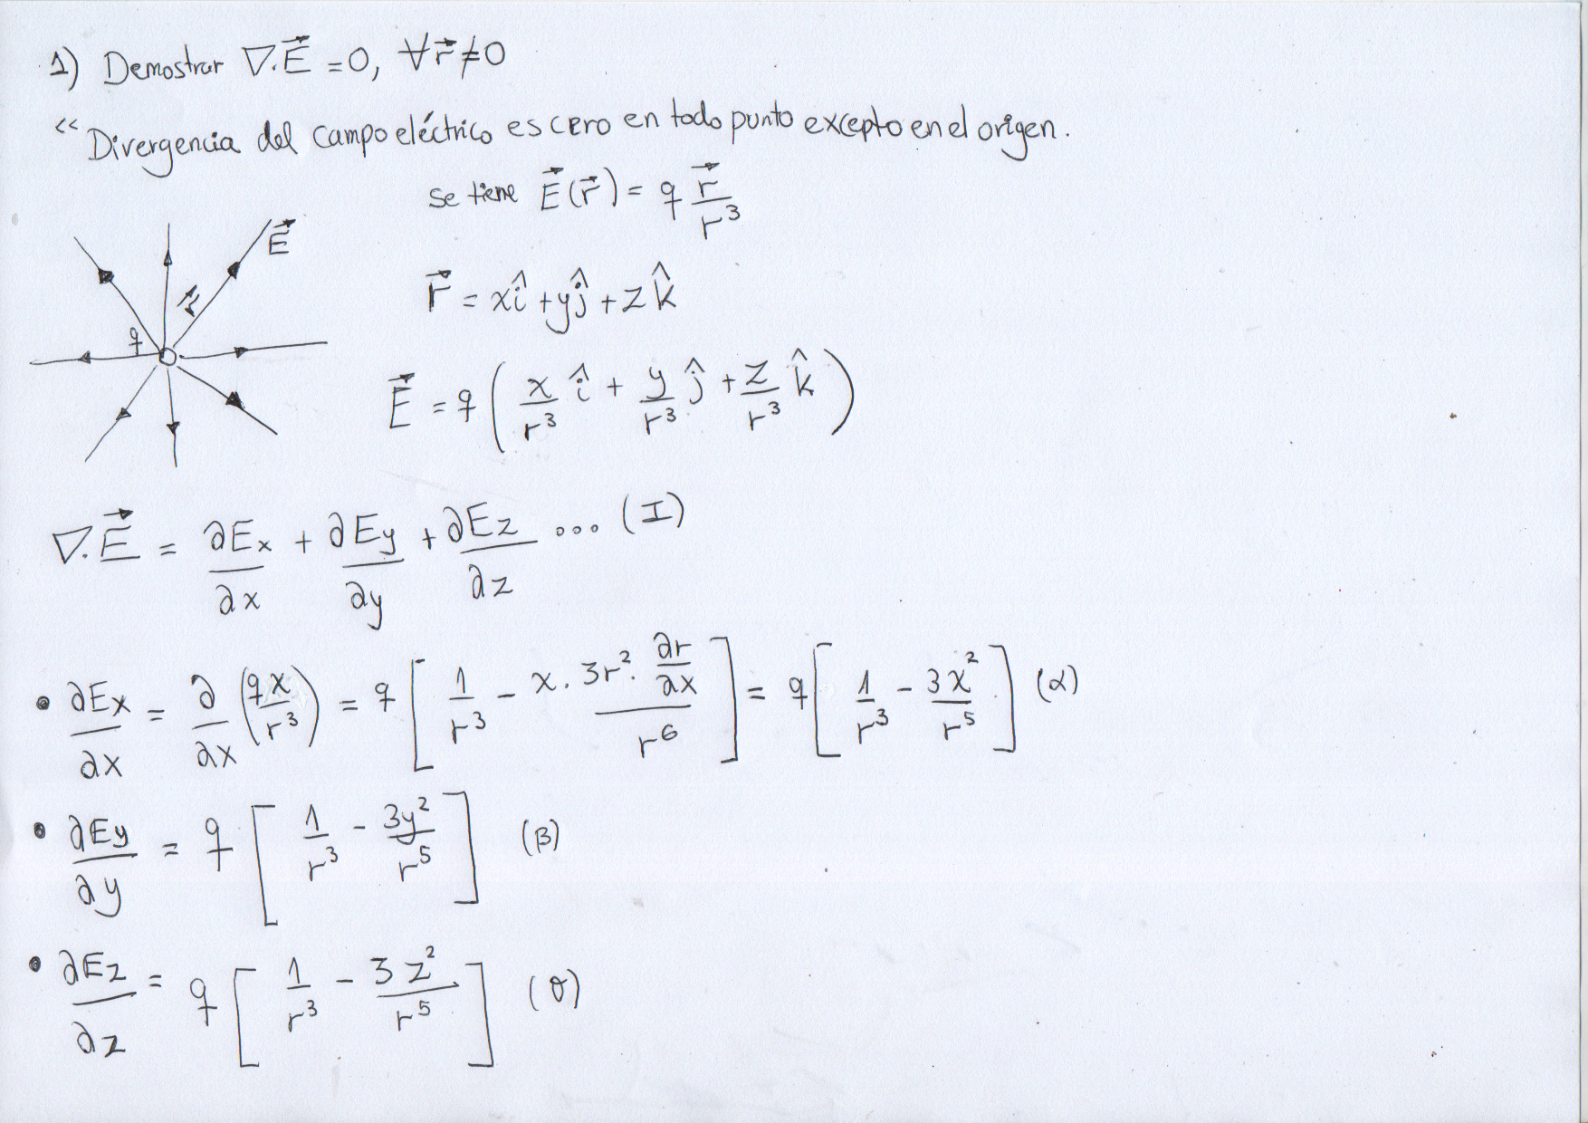 1) Demostrar ∇.E⃗ = 0, ∀r⃗ ≠ 0
“ Divergencia del campo eléctrico es cero en todo punto excepto en el origen.
se tiene E⃗(r⃗) = q r⃗/r³
E⃗
r⃗
q
r⃗ = xî + yĵ + zk̂
E⃗ = q ( x/r³ î + y/r³ ĵ + z/r³ k̂ )
∇.E⃗ = ∂Ex/∂x + ∂Ey/∂y + ∂Ez/∂z ... (I)
• ∂Ex/∂x = ∂/∂x (qx/r³) = q [ 1/r³ - x.3r².∂r/∂x / r⁶ ] = q [ 1/r³ - 3x²/r⁵ ] (α)
• ∂Ey/∂y = q [ 1/r³ - 3y²/r⁵ ] (β)
• ∂Ez/∂z = q [ 1/r³ - 3z²/r⁵ ] (γ)